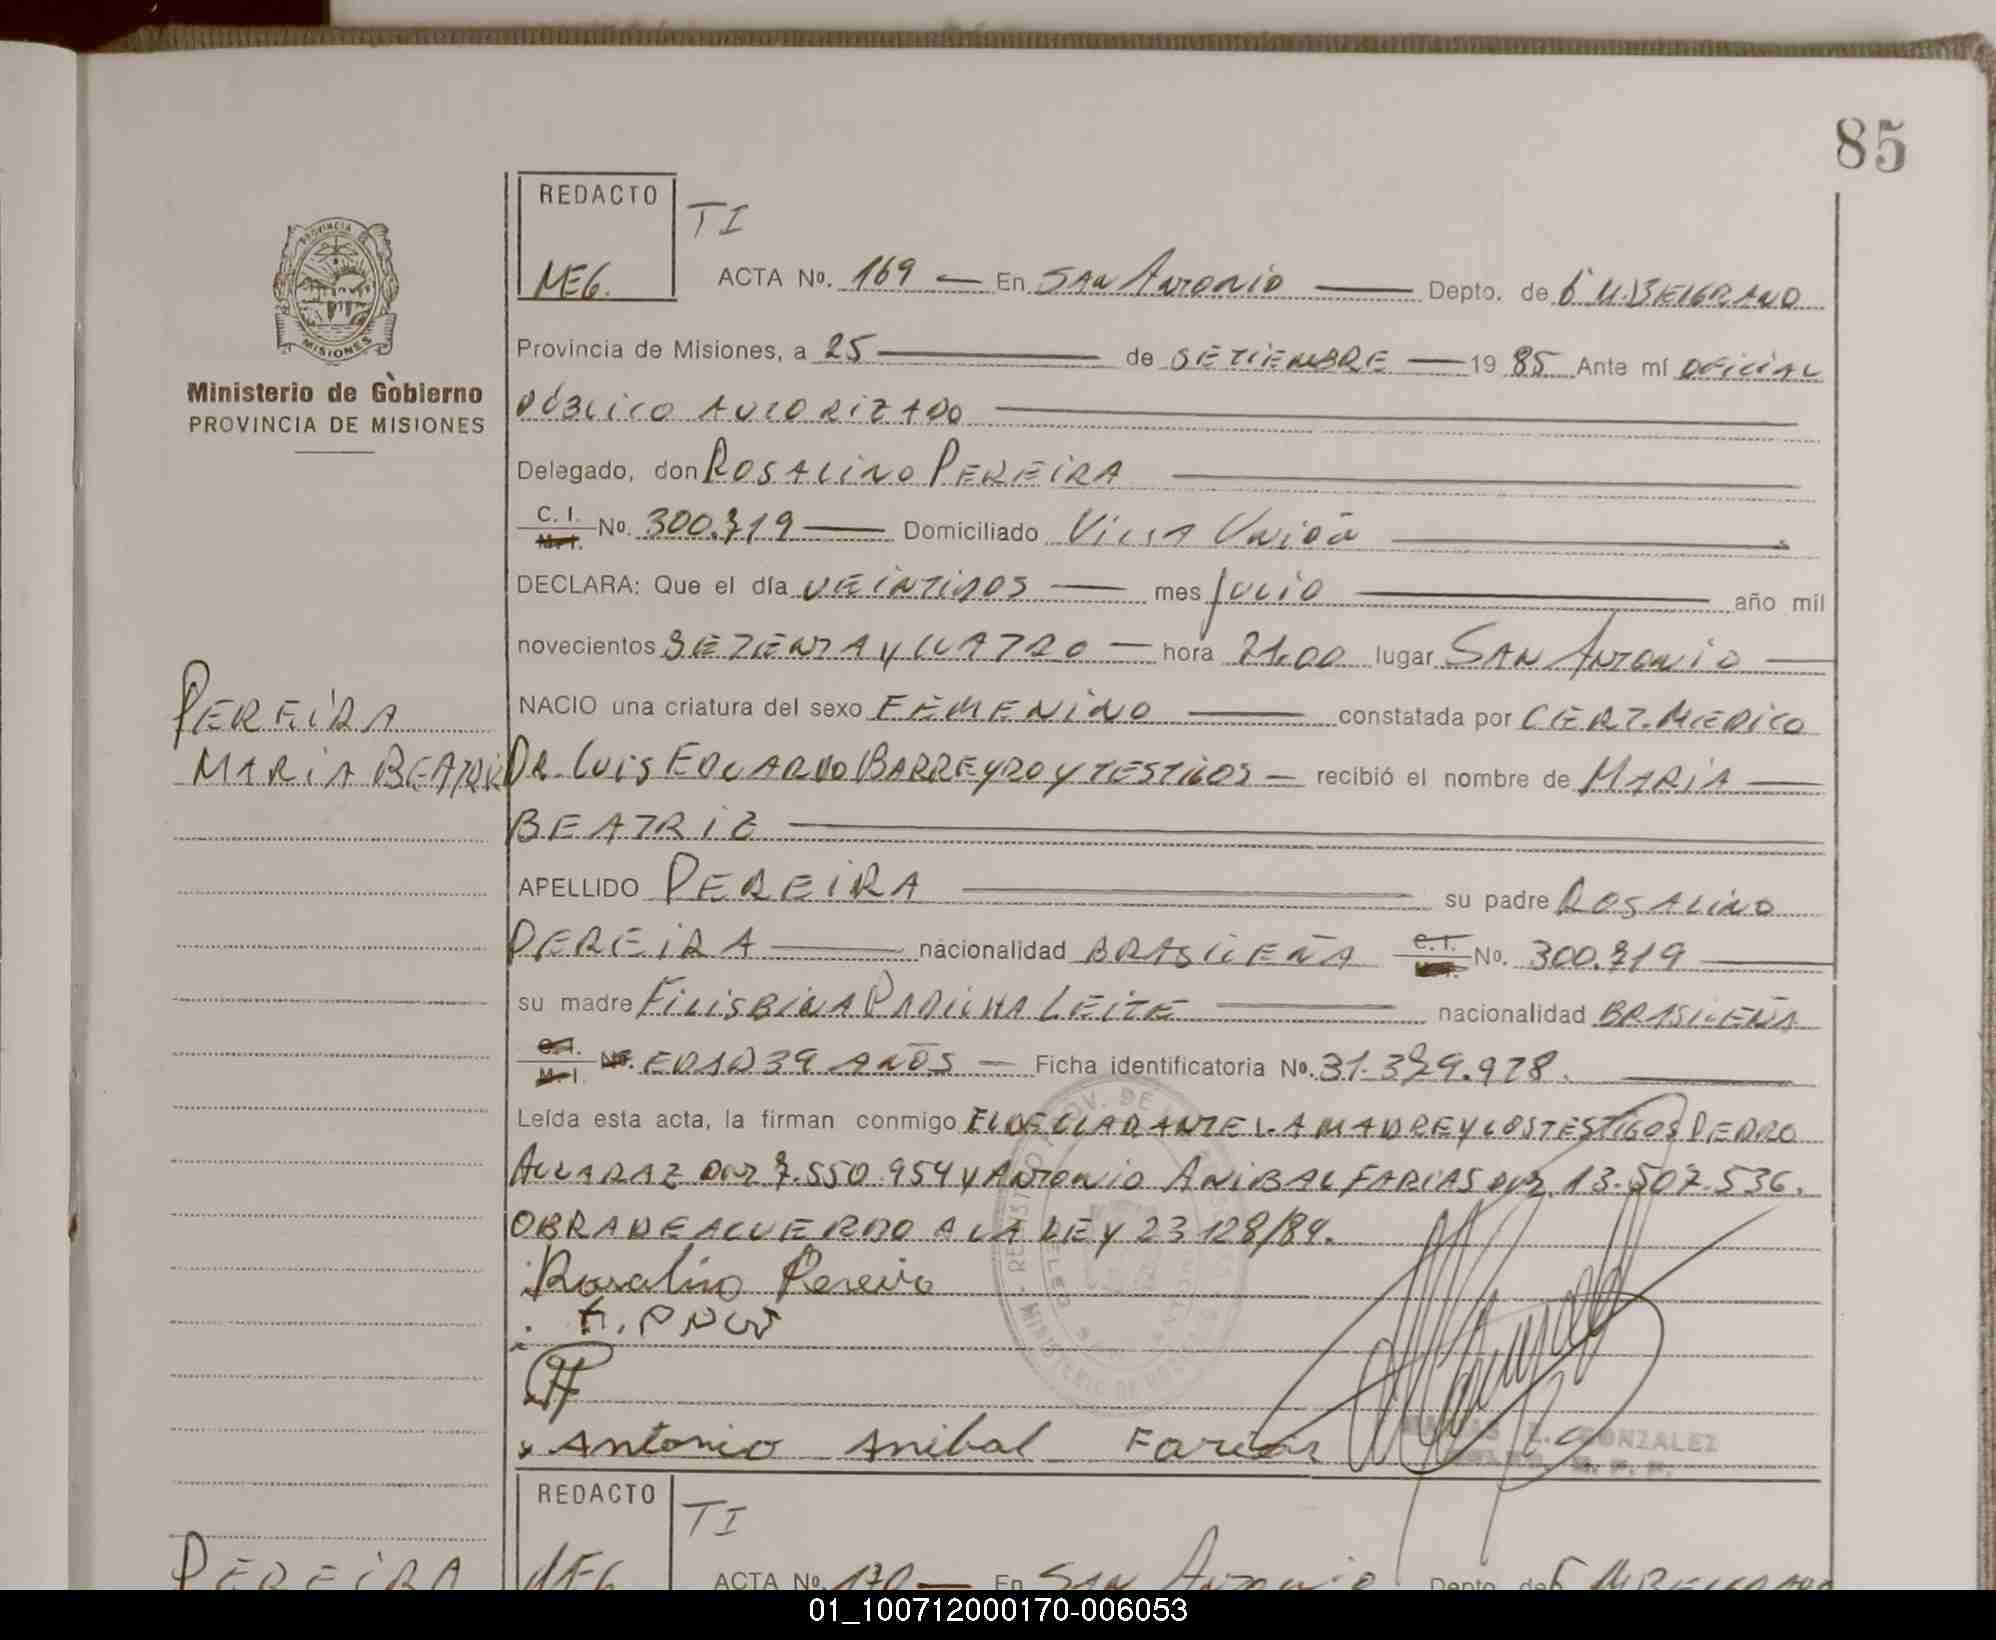 85
REDACTO
TI
MEG.
ACTA Nº. 169 — En SAN ANTONIO — Depto. de G M. BELGRANO
PROVINCIA DE
MISIONES
Provincia de Misiones, a 25 — de SETIEMBRE — 1985 Ante mí OFICIAL
Ministerio de Gobierno
PROVINCIA DE MISIONES
PÚBLICO AUTORIZADO
Delegado, don ROSALINO PEREIRA
C. I. M. I. Nº. 300.719 — Domiciliado VILLA UNIÓN
DECLARA: Que el día VEINTIDOS — mes JULIO — año mil
novecientos SETENTA y CUATRO — hora 21.00 lugar SAN ANTONIO —
NACIO una criatura del sexo FEMENINO — constatada por CERT. MEDICO
PEREIRA
MARIA BEATRIZ
DR. LUIS EDUARDO BARREYRO Y TESTIGOS — recibió el nombre de MARIA —
BEATRIZ
APELLIDO PEREIRA — su padre ROSALINO
PEREIRA — nacionalidad BRASILEÑA C. I. Nº. 300.719
su madre FILISBINA PADILHA LEITE — nacionalidad BRASILEÑA
C. I. M. I. Nº. EDAD 39 AÑOS — Ficha identificatoria Nº. 31.329.978.
Leída esta acta, la firman conmigo EL DECLARANTE LA MADRE Y LOS TESTIGOS PEDRO
ALCARAZ DNI 7.550.954 Y ANTONIO ANIBAL FARIAS DNI 13.507.536.
OBRA DE ACUERDO A LA LEY 23128/84.
Rosalino Pereira
Antonio Anibal Farias
GONZALEZ
REDACTO
TI
MEG
PEREIRA
ACTA Nº. 170 — En SAN ANTONIO Depto. de G M BELGRANO
01_100712000170-006053